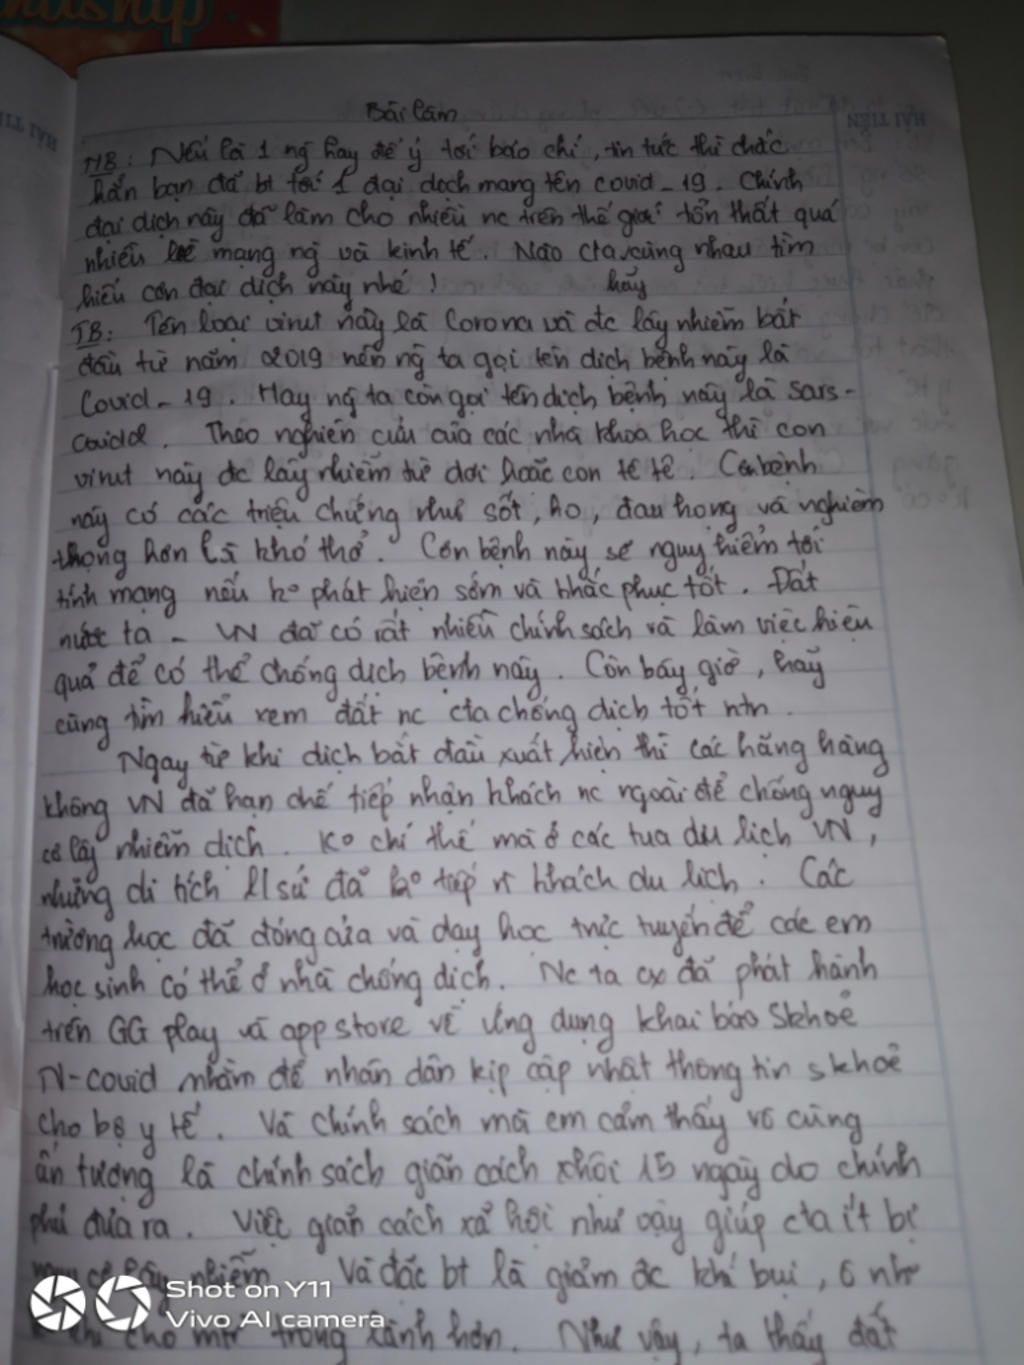 Bài làm
MB: Nếu là 1 ng hay để ý tới báo chí, tin tức thì chắc
hẳn bạn đã bt tới 1 đại dịch mang tên covid-19. Chính
đại dịch này đã làm cho nhiều nc trên thế giới tổn thất quá
nhiều mạng ng và kinh tế. Nào cta cùng nhau tìm
hãy
hiểu cơn đại dịch này nhé!
TB: Tên loại virut này là Corona và đc lây nhiễm bắt
đầu từ năm 2019 nên ng ta gọi tên dịch bệnh này là
Covid-19. Hay ng ta còn gọi tên dịch bệnh này là sars-
covid2. Theo nghiên cứu của các nhà khoa học thì con
virut này đc lây nhiễm từ dơi hoặc con tê tê. Căn bệnh
này có các triệu chứng như sốt, ho, đau họng và nghiêm
trọng hơn là khó thở. Cơn bệnh này sẽ nguy hiểm tới
tính mạng nếu ko phát hiện sớm và khắc phục tốt. Đất
nước ta - VN đã có rất nhiều chính sách và làm việc hiệu
quả để có thể chống dịch bệnh này. Còn bây giờ, hãy
cùng tìm hiểu xem đất nc cta chống dịch tốt ntn.
Ngay từ khi dịch bắt đầu xuất hiện thì các hãng hàng
không VN đã hạn chế tiếp nhận khách nc ngoài để chống nguy
cơ lây nhiễm dịch. Ko chỉ thế mà ở các tua du lịch VN,
những di tích lsử đã ko tiếp khách du lịch. Các
trường học đã đóng cửa và dạy học trực tuyến để các em
học sinh có thể ở nhà chống dịch. Nc ta cx đã phát hành
trên GG play và app store về ứng dụng khai báo skhoẻ
N-covid nhằm để nhân dân kịp cập nhật thông tin skhoẻ
cho bộ y tế. Và chính sách mà em cảm thấy vô cùng
ấn tượng là chính sách giãn cách xhội 15 ngày do chính
phủ đưa ra. Việc giãn cách xã hội như vậy giúp cta ít bị
nguy cơ lây nhiễm. Và đặc bt là giảm đc khí bụi, ô nh
cho mtr trong lành hơn. Như vậy, ta thấy đất
Shot on Y11
Vivo AI camera